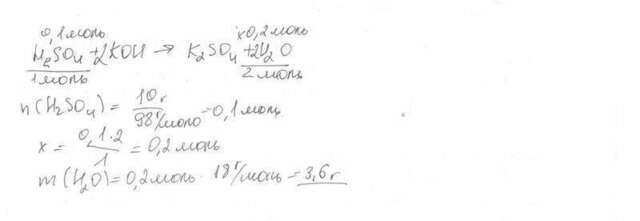 0,1моль x 0,2моль
H₂SO₄ + 2KOH → K₂SO₄ + 2H₂O
1моль 2 моль
n(H₂SO₄) = 10г / 98г/моль = 0,1моль
x = 0,1·2 / 1 = 0,2моль
m(H₂O) = 0,2моль · 18г/моль = 3,6г